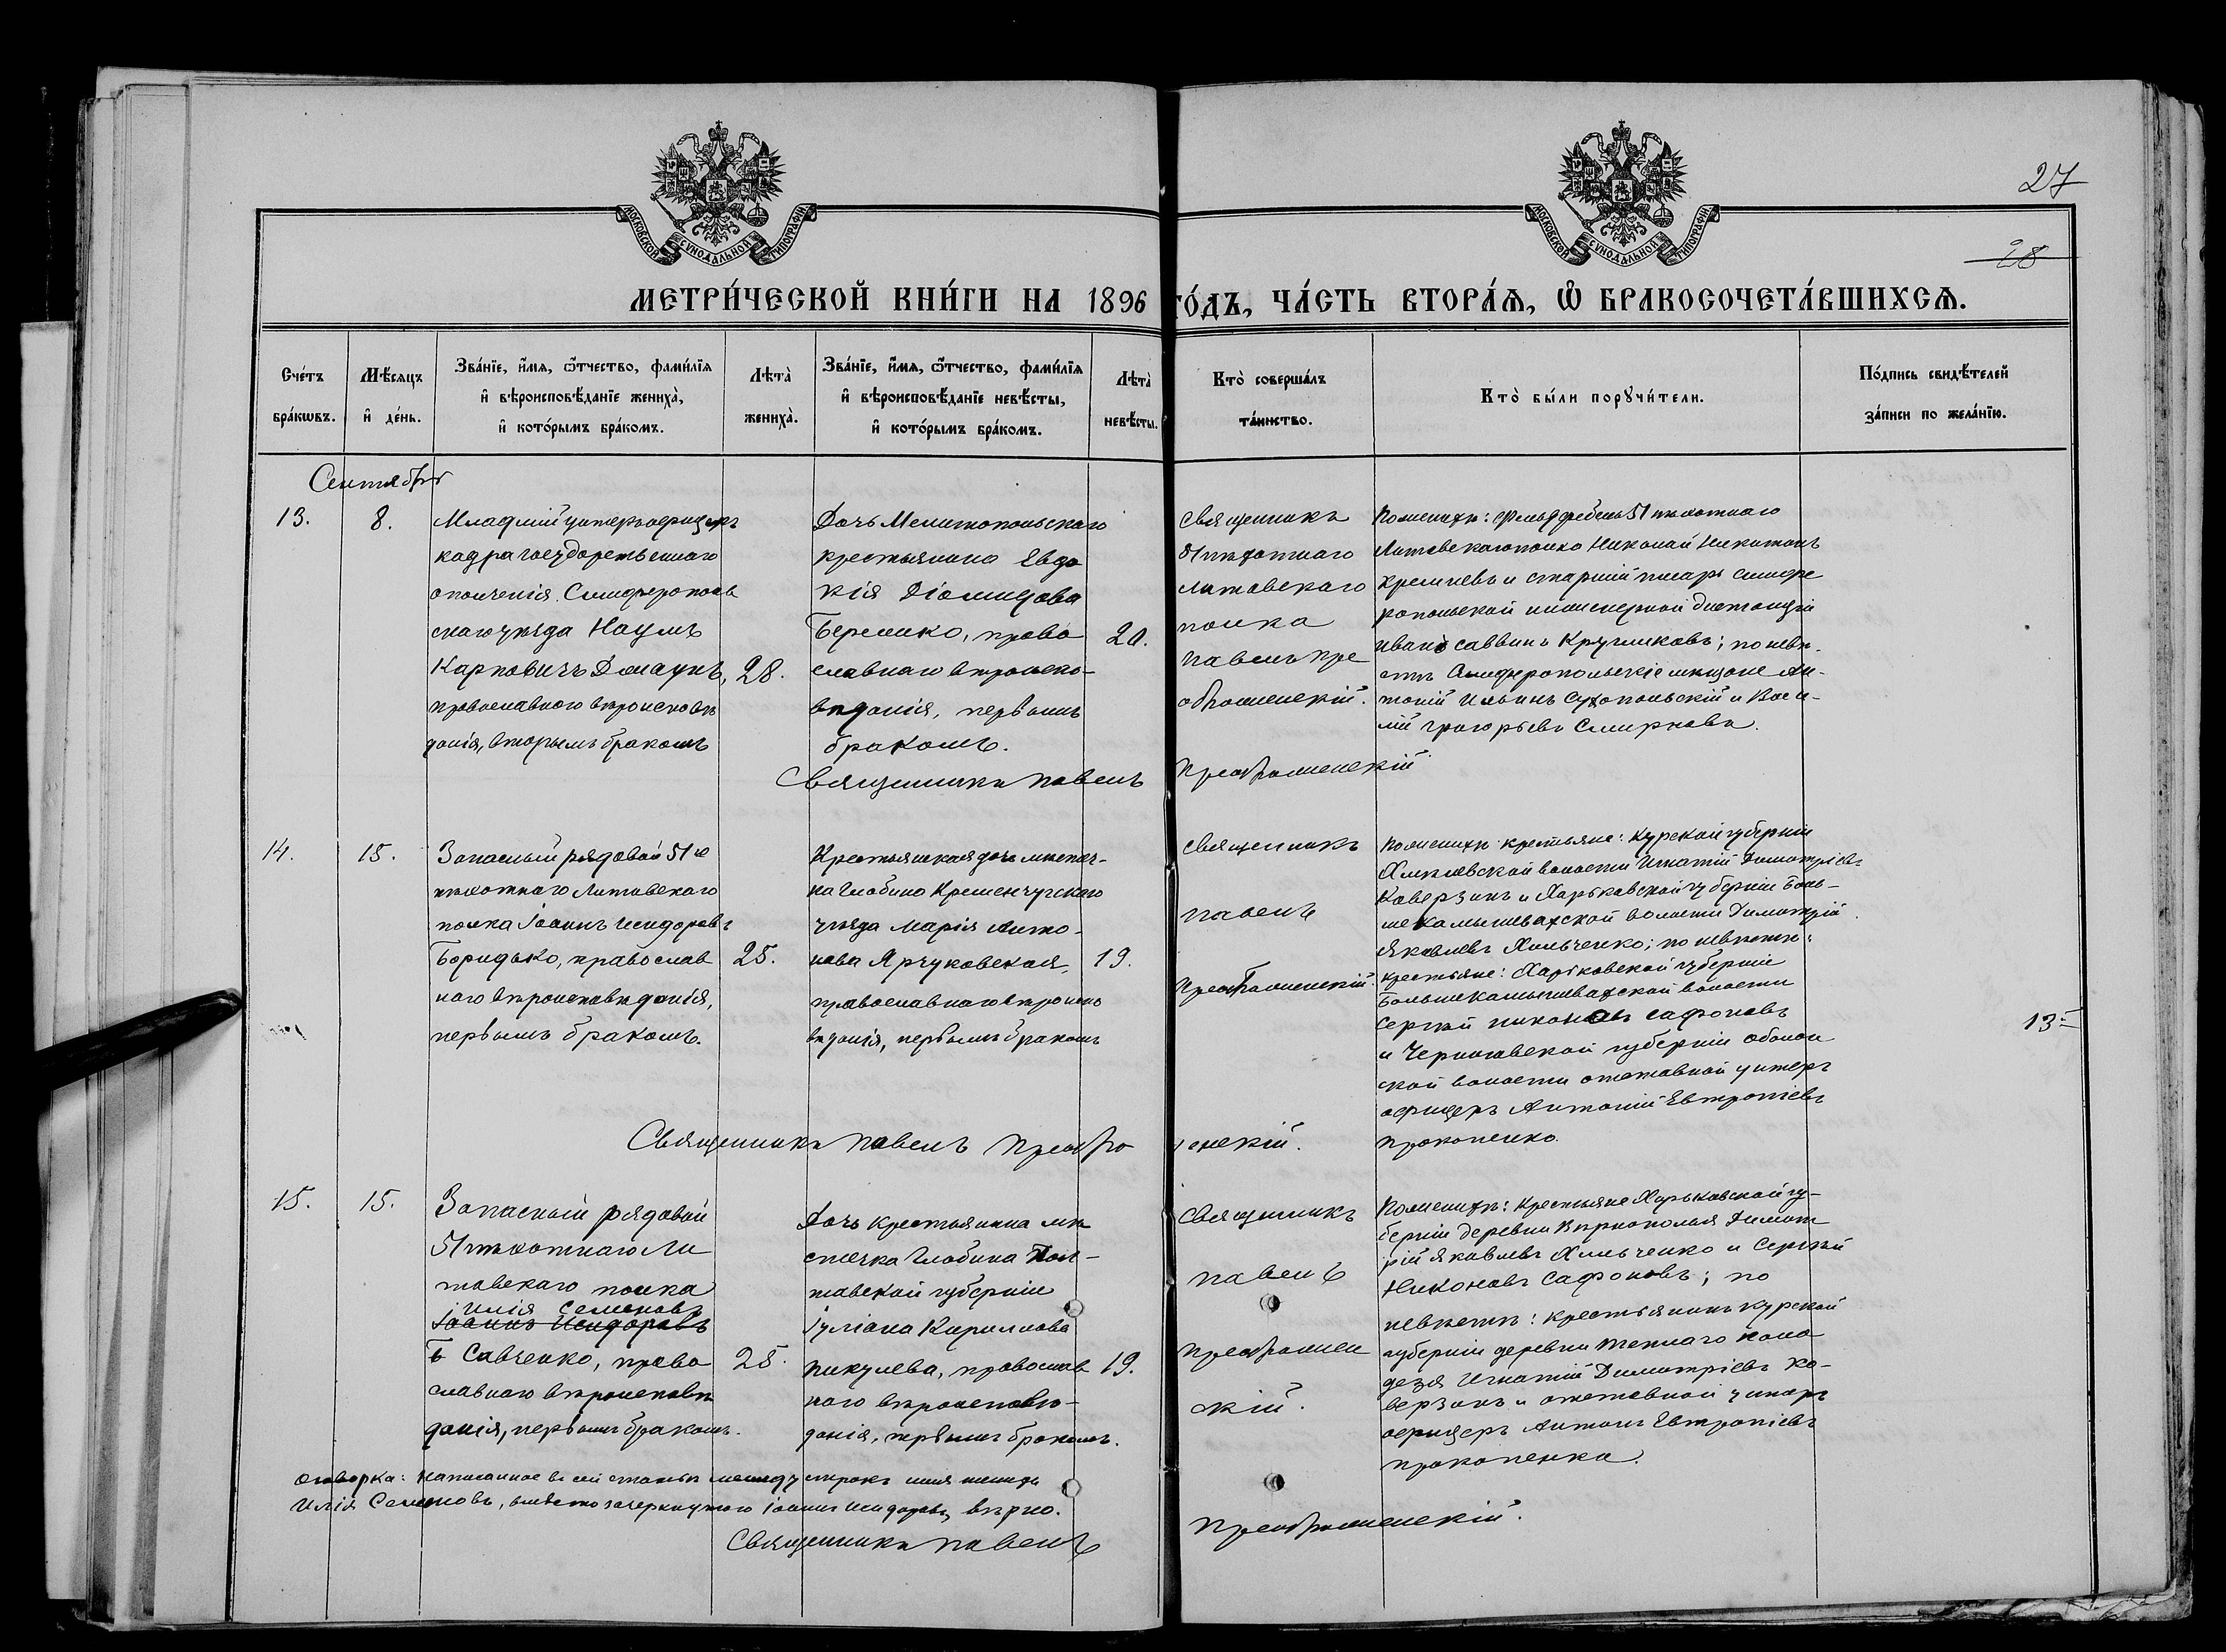 27
28
МОСКОВСКОЙ СУНОДАЛЬНОЙ ТИПОГРАФІИ
МОСКОВСКОЙ СУНОДАЛЬНОЙ ТИПОГРАФІИ
МЕТРИ́ЧЕСКОЙ КНИ́ГИ НА 1896 ГО́ДЪ, ЧА́СТЬ ВТОРА́Я, Ѽ БРАКОСОЧЕТА́ВШИХСЯ.
Сче́тъ
бра́кѡвъ.
Мѣ́сяцъ
и҆ де́нь.
Зва́нїе, и҆́мя, ѻ҆́тчество, фами́лїя
и҆ вѣроисповѣ́данїе жениха̀,
и҆ кото́рымъ бра́комъ.
Лѣта̀
жениха̀.
Зва́нїе, и҆́мя, ѻ҆́тчество, фами́лїя
и҆ вѣроисповѣ́данїе невѣ́сты,
и҆ кото́рымъ бра́комъ.
Лѣта̀
невѣ́сты.
Кто̀ соверша́лъ
та́инство.
Кто̀ бы́ли порꙋчи́тели.
По́дпись свидѣ́телей
за́писи по жела́нїю.
Сентябрь
13.
8.
Младшій унтеръ офицеръ
кадра государственнаго
ополченія Симферополь
скаго уѣзда Наумъ
Карповичъ Домашъ,
православнаго вѣроисповѣ
данія, вторымъ бракомъ
28.
Дочь Мелитопольскаго
крестьянина Евдо
кія Діомидова
Беренко, право
славнаго вѣроиспо-
вѣданія, первымъ
бракомъ.
20.
Священникъ
51 пѣхотнаго
Литовскаго
полка
Павелъ Пре
ображенскій.
По женихѣ: фельдфебель 51 пѣхотнаго
Литовскаго полка Николай Никитинъ
Кремневъ и старшій писарь Симфе
ропольской инженерной дистанціи
Иванъ Саввинъ Кругликовъ; по невѣ-
стѣ Симферопольскіе мѣщане Ан-
тоній Ильинъ Сухопольскій и Васи-
лій Григорьевъ Смирновъ.
Священникъ Павелъ Преображенскій
14.
15.
Запасный рядовой 51го
пѣхотнаго Литовскаго
полка Іоаннъ Исидоровъ
Боридько, православ
наго вѣроисповѣданія,
первымъ бракомъ.
25.
Крестьянская дочь мѣстеч-
ка Глобино Кременчугскаго
уѣзда Марія Анто-
нова Ярчуковская,
православнаго вѣроиспо
вѣданія, первымъ бракомъ
19.
Священникъ
Павелъ
Преображенскій.
По женихѣ крестьяне: Курской губерніи
Хмѣлевской волости Игнатій Димитріевъ
Каверзинъ и Харьковской губерніи Боль-
шекамышевахской волости Димитрій
Яковлевъ Хильченко; по невѣстѣ:
крестьяне: Харьковской губерніи
Большекамышевахской волости
Сергѣй Никоновъ Сафоновъ
и Черниговской губерніи Оболон
ской волости отставной унтеръ
офицеръ Антоній Евтропіевъ
Прокопенко.
13-
Священникъ Павелъ Преображенскій.
15.
15.
Запасный рядовой
51 пѣхотнаго Ли
товскаго полка
Илія Семеновъ
Іоаннъ Исидоровъ
Савченко, право
славнаго вѣроисповѣ
данія, первымъ бракомъ.
25.
Дочь крестьянина мѣ
стечка Глобина Пол-
тавской губерніи
Іуліана Кириллова
Пикулева, православ
наго вѣроисповѣ-
данія, первымъ бракомъ.
19.
Священникъ
Павелъ
Преображен
скій.
По женихѣ: крестьяне Харьковской гу-
берніи деревни Вѣрнополья Димит
рій Яковлевъ Хильченко и Сергѣй
Никоновъ Сафоновъ; по
невѣстѣ: крестьянинъ Курской
губерніи деревни Теплаго Коло
дезя Игнатій Димитріевъ Ка-
верзинъ и отставной унтеръ
офицеръ Антонъ Евтропіевъ
Прокопенко.
Оговорка: Написанное въ сей статьѣ между строкъ имя жениха
Илія Семеновъ, вмѣсто зачеркнутаго Іоаннъ Исидоровъ, вѣрно.
Священникъ Павелъ Преображенскій.